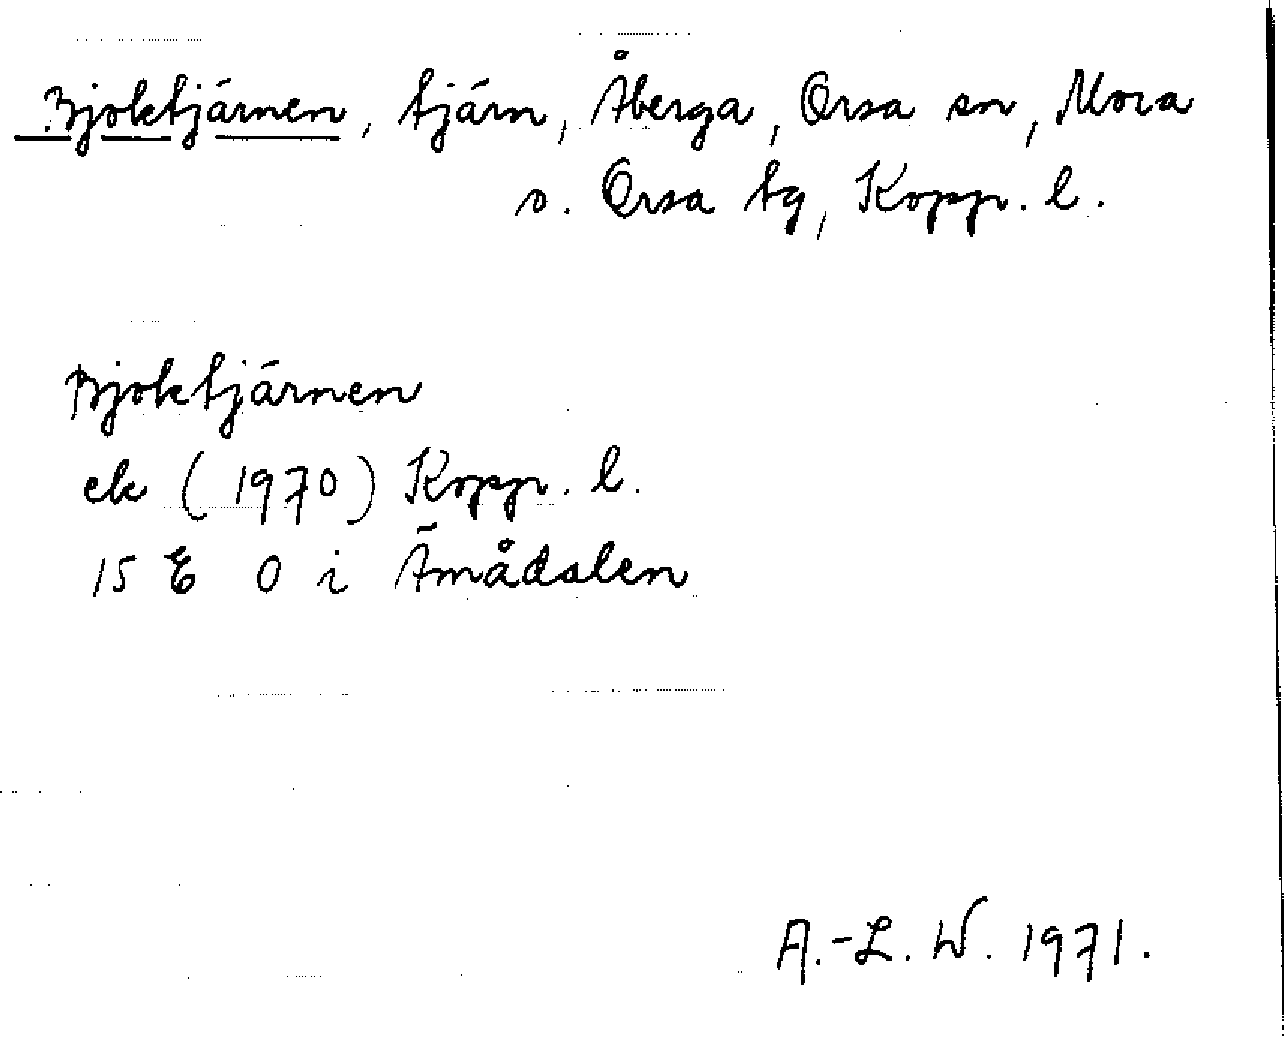 Bjoktjärnen, tjärn, Åberga, Orsa sn, Mora
o. Orsa tg, Kopp. l.
Bjoktjärnen
ek (1970) Kopp. l.
15 E 0 i Ämådalen
A.-L. W. 1971.